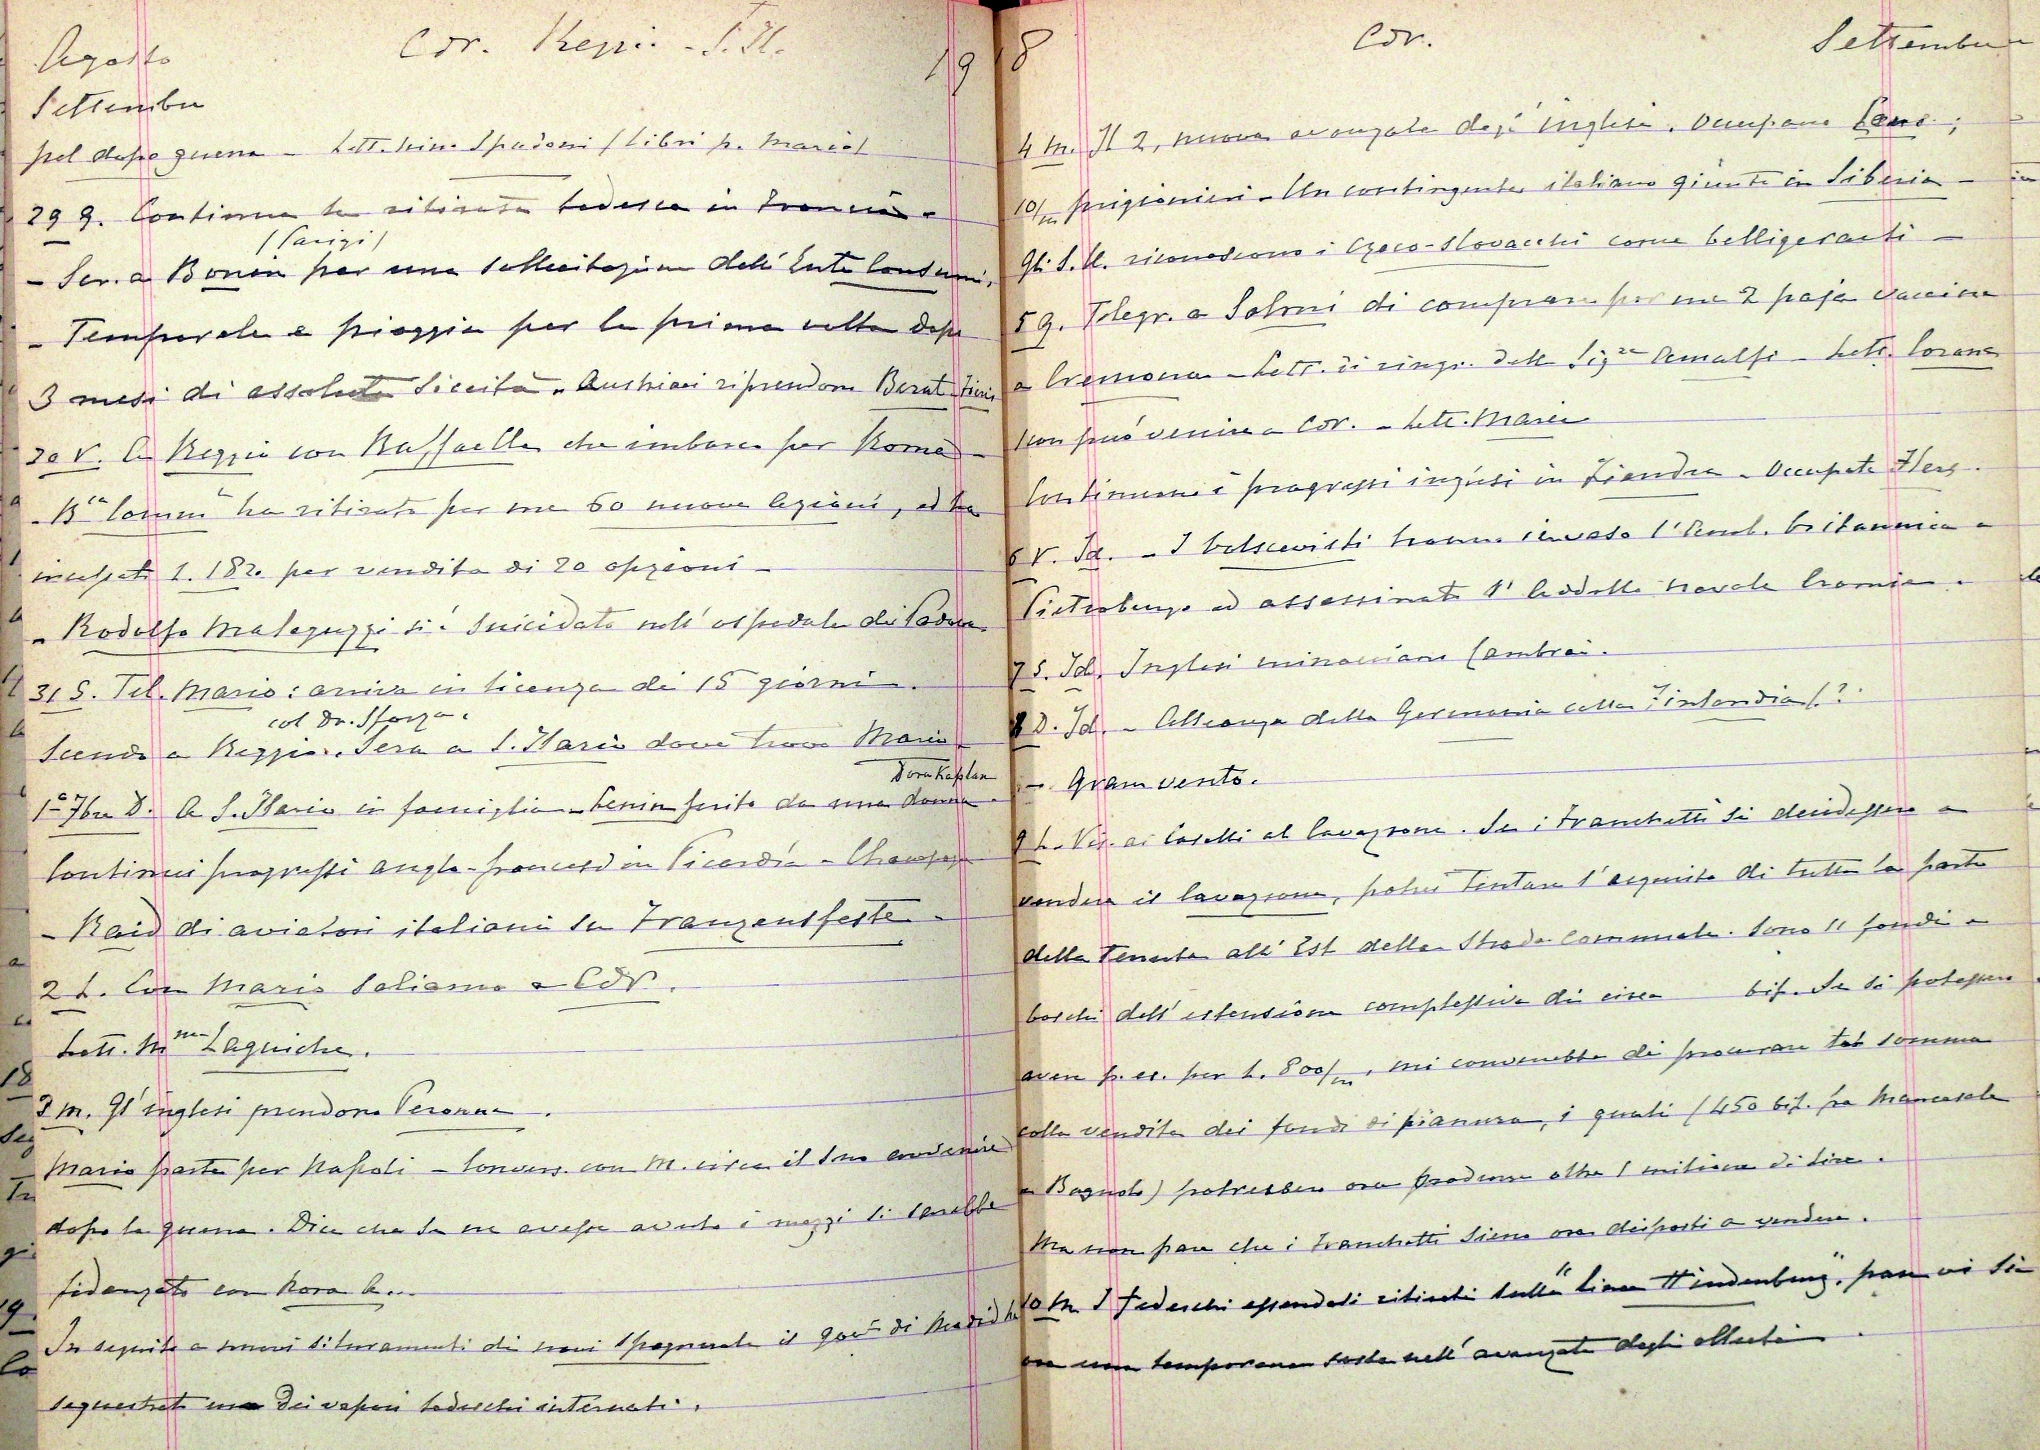 Agosto Cor. Reggio - S. Il. 19
Settembre
pel dopo guerra - Lett. Spadoni (libri p. Mario)
29 g. Continua la ritirata tedesca in Francia -
(Parigi)
- Scr. a Bonin per una sollecitazione dell' Ente Consumi.
- Temporale e pioggia per la prima volta dopo
3 mesi di assoluta siccità. Austriaci riprendono Berat Fieri
30 V. A Reggio con Raffaella che imbarco per Roma -
- Bca Comm ha ritirato per me 60 nuove azioni, ed ha
incassato l. 182 per vendita di 20 opzioni -
- Rodolfo Malaguzzi si è suicidato nell' ospedale di Padova
31 S. Tel. Mario: arriva in licenza di 15 giorni.
col Dr. Sforza.
Scendo a Reggio. Sera a S. Ilario dove trovo Mario -
Dora Kaplan
1° 7bre D. A S. Ilario in famiglia - Lenin ferito da una donna -
Continui progressi anglo-francesi in Picardia - Champagne
- Raid di aviatori italiani su Franzensfeste -
2 L. Con Mario saliamo a Cor.
Lett. Mme Laguiche.
3 M. Gl' inglesi prendono Peronne.
Mario parte per Napoli - Convers. con M. circa il suo avvenire
dopo la guerra. Dice che se ne avesse avuto i mezzi si sarebbe
fidanzato con Nora A...
In seguito a nuovi siluramenti di navi spagnuole il Govo di Madrid ha
sequestrato uno dei vapori tedeschi internati.
18 Cor. Settembre
4 M. Il 2, nuova avanzata degl' inglesi. Occupano Lens;
10/m prigionieri - Un contingente italiano giunto in Siberia -
Gli S. U. riconoscono i Czeco-Slovacchi come belligeranti -
5 g. Telegr. a Salmi di comprare per me 2 paja vaccine
a Cremona - Lett. di ringr. delle Sigre Amalfi - Lett.
non può venire a Cor. - Lett. Mario
Continuano i progressi inglesi in Fiandra - Occupata
6 V. Id. - I bolscevisti hanno invaso l' Amb. britannica a
Pietroburgo ed assassinato l' Addetto navale Cromie.
7 S. Id. Inglesi minacciano Cambrai.
8 D. Id. - Alleanza della Germania colla Finlandia (?
- Gran vento.
9 L. Vis. ai Caselli al Lavazzone. Se i Franchetti si decidessero a
vendere il Lavazzone, potrei tentare l' acquisto di tutta la parte
della Tenuta all' Est della Strada Comunale. Sono 11 fondi a
boschi dell' estensione complessiva di circa bif. Se si potessero
avere p. es. per L. 800/m, mi converrebbe di procurare tal somma
colla vendita dei fondi di pianura, i quali (450 bif. fra Mancasale
e Bagnolo) potrebbero ora produrre oltre 1 milione di lire.
Ma non pare che i Franchetti siano ora disposti a vendere.
10 M. I tedeschi essendosi ritirati sulla "linea Hindenburg", pare vi sia
ora una temporanea sosta nell' avanzata degli alleati.